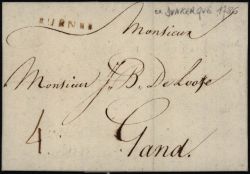 ex DUNKERQUE 1786
FURNES
Monsieur
Monsieur J. B. De Looze
4
Gand.